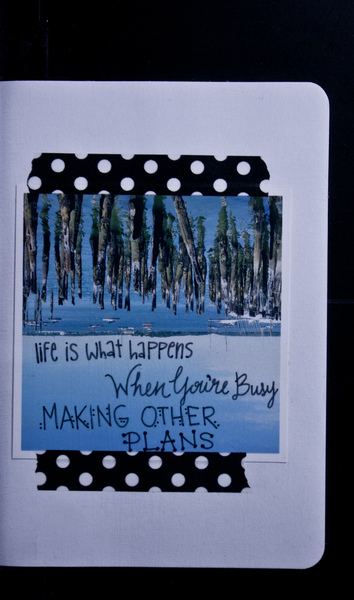 life is what happens
When You're Busy
MAKING OTHER
PLANS